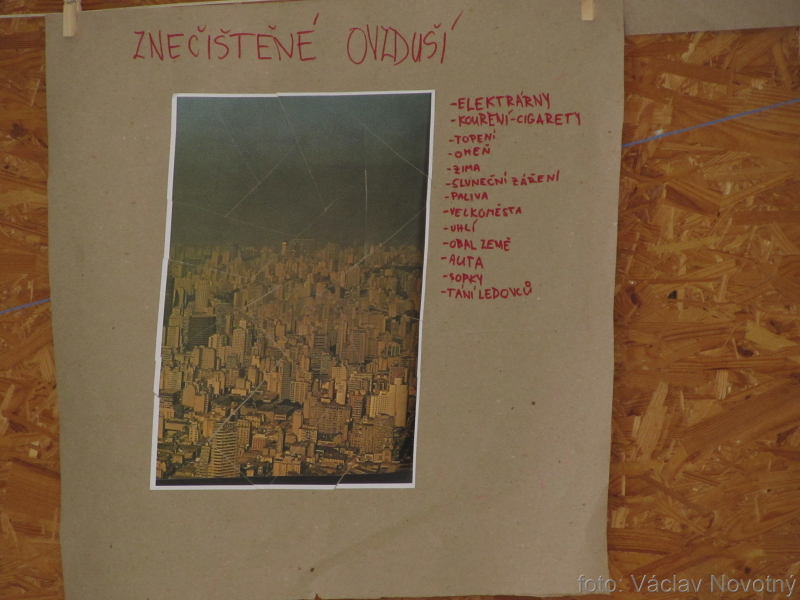 ZNEČIŠTEŇÉ OVZDUŠÍ
-ELEKTRÁRNY
-KOUŘENÍ-CIGARETY
-TOPENÍ
-OHEŇ
-ZIMA
-SLUNEČNÍ ZÁŘENÍ
-PALIVA
-VELKOMĚSTA
-UHLÍ
-OBAL ZEMĚ
-AUTA
-SOPKY
-TÁNÍ LEDOVCŮ
foto: Václav Novotný